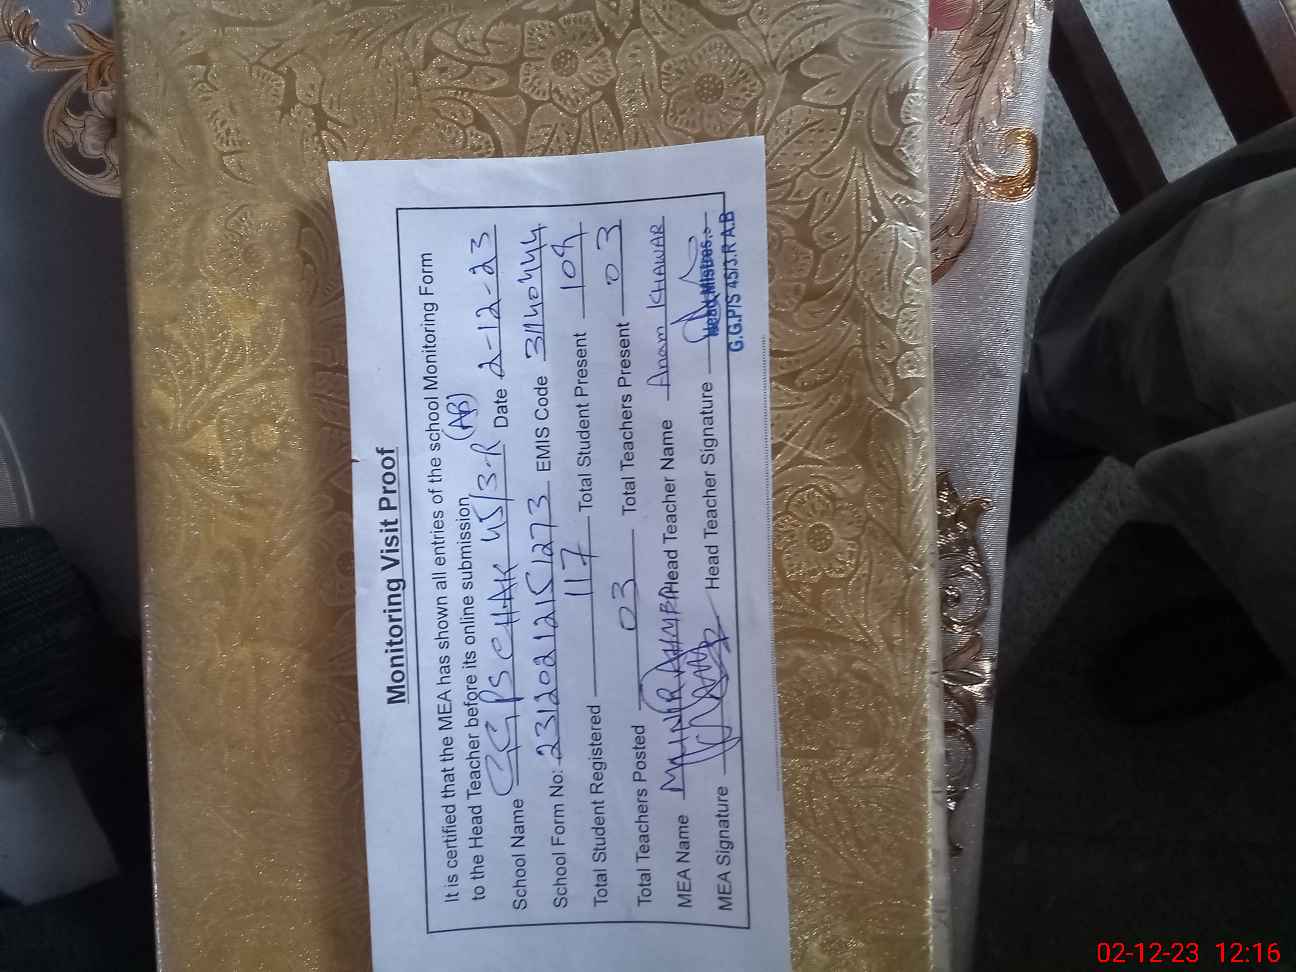 Monitoring Visit Proof
It is certified that the MEA has shown all entries of the school Monitoring Form
to the Head Teacher before its online submission
School Name GGPS CHAK 45/3-R (AB) Date 2-12-23
School Form No: 23120212151273 EMIS Code
Total Student Registered 117 Total Student Present 109
Total Teachers Posted 03 Total Teachers Present 03
MEA Name MUNIR AHMAD Head Teacher Name Anam KHAWAR
MEA Signature Head Teacher Signature
Head Mistres
G.G.P/S 45/3.R A.B
02-12-23 12:16